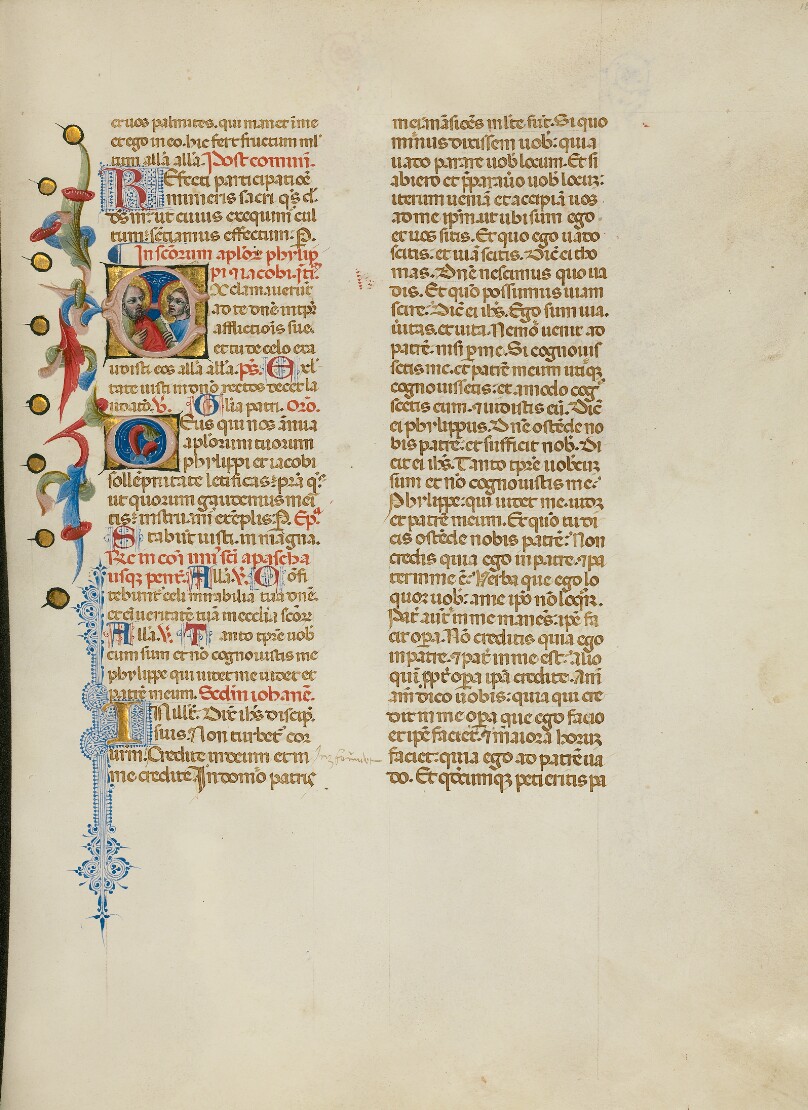 et uos palmites. qui manet ī me
et ego in eo. hic fert fructum ml̄
tum all̄a all̄a. Post commū.
REfecti participatiōe
muneris sacri q̄s d̄.
d̄s nr̄. ut cuius exequim̄ cul
tum. sentiamus effectum. P.
In sc̄orum aplōꝝ phylip
pi ⁊ iacobi. īt̄.
EXclamauerūt
ad te dn̄e in tp̄r
afflictiōis sue.
et tu de celo exa
udisti eos all̄a all̄a. ps̄. Exl̄
tate iusti in dn̄o rectos decet la
udatō. ℣. Gl̄ia patri. Or̄o.
DEus qui nos ānua
aplōrum tuorum
phylippi et iacobi
sollēpnitate letificas. p̄ra q̄s
ut quorum gaudemus mei
tis. instruam̄ exēplis. P. Ep̄a
Stabūt iusti. in magna.
usqꝫ pent. All̄a. ℣. Cōfi
tebunt̄ celi mirabilia tua dn̄e.
et ei ueritatē tuā in ecclīa sc̄oꝝ
All̄a. ℣. Tanto tp̄re uob
cum sum et nō cognouistis me
phylippe qui uidet me uidet et
patrē meum. Scd̄m iohanē.
IN illˀ. Dix̄ ih̄s discip̄.
suis. Non turbet̄ cor
ur̄m. Credite in deum et in
me credite. In domo patris
mei māsiōes ml̄te sūt. Si quo
minus dixissem uob: quia
uado parare uob locum. Et si
abiero et p̄parauo uob locū:
iterum ueniā et accipiā uos
ad me ip̄m. ut ubi sum ego
et uos sitis. Et quo ego uado
scitis. et uiā scitis. Dic̄ ei tho
mas. Dn̄e nescimus quo ua
dis. Et quō possumus uiam
scire. Dic̄ ei ih̄s. Ego sum uia.
ūitas. et uita. Nemo uenit ad
patrē. nisi p̄ me. Si cognouis
setis me. et patrē meum utiqꝫ
cognouissetis: et amodo coḡ
scetis eum. ⁊ uidistis eū. Dic̄
ei phylippus. Dn̄e ostēde no
bis patrē: et sufficit nob. Di
cit ei ih̄s. Tanto tp̄re uobcū
sum et nō cognouistis me:
Phylippe: qui uidet me. uidꝫ
et patrē meum. Et quō tu di
cis ostēde nobis patrē: Non
credis quia ego in patre. ⁊ pa
ter in me ē: Verba que ego lo
quor uob: a me ip̄o nō loq̄r.
Pat̄ aut̄ in me manēs. ip̄e fa
cit opa. Nō creditis quia ego
in patre. ⁊ pat̄ in me est: Alio
quī ꝓpt̄ opa ip̄a credite. Am̄
am̄ dico uobis: quia qui cre
dit in me opa que ego facio
et ip̄e faciet. ⁊ maiora horū
faciet: quia ego ad patrē ua
do. Et qd̄cumqꝫ petieritis pa